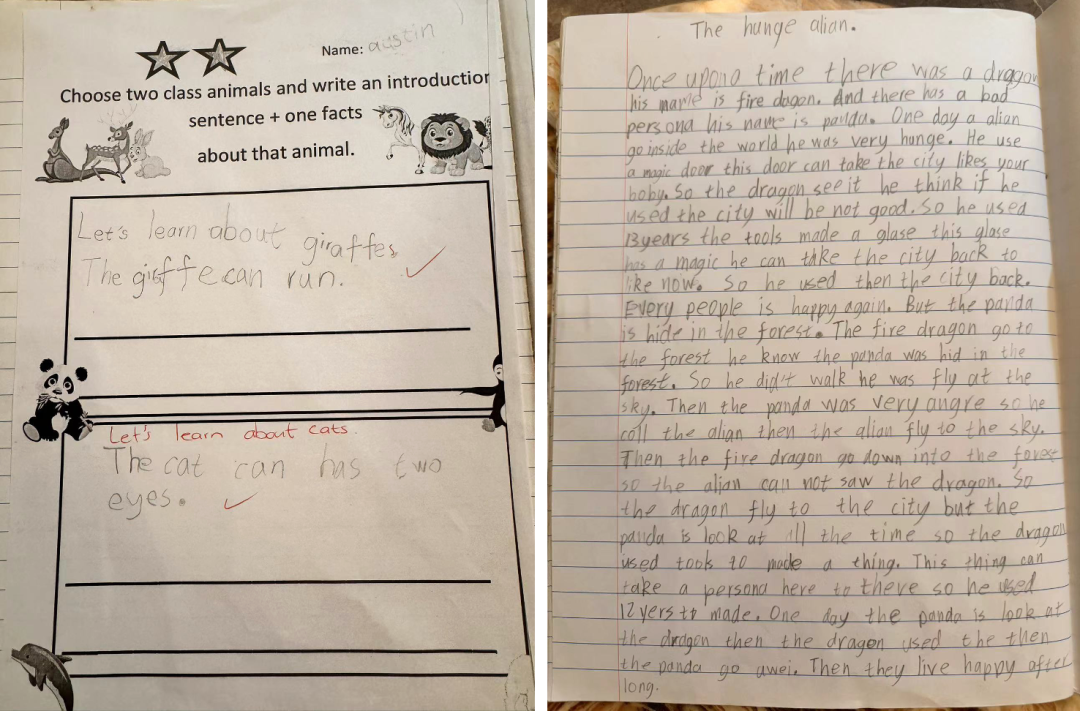 Name: austin
Choose two class animals and write an introduction
sentence + one facts
about that animal.
Let's learn about giraffes.
The giraffe can run.
Let's learn about cats.
The cat can has two
eyes.
The hunge alian.
Once upona time there was a dragon
his name is fire dagon. And there has a bad
persona his name is panda. One day a alian
go inside the world he was very hunge. He use
a magic door this door can take the city likes your
boby. So the dragon see it he think if he
used the city will be not good. So he used
13 years the tools made a glase this glase
has a magic he can take the city back to
like now. So he used then the city back.
Every people is happy again. But the panda
is hide in the forest. The fire dragon go to
the forest he know the panda was hid in the
forest. So he did't walk he was fly at the
sky. Then the panda was very angre so he
call the alian then the alian fly to the sky.
Then the fire dragon go down into the forest
so the alian can not saw the dragon. So
the dragon fly to the city but the
panda is look at all the time so the dragon
used tools to made a thing. This thing can
take a persona here to there so he used
12 yers to made. One day the panda is look at
the dragon then the dragon used the then
the panda go awei. Then they live happy after
long.